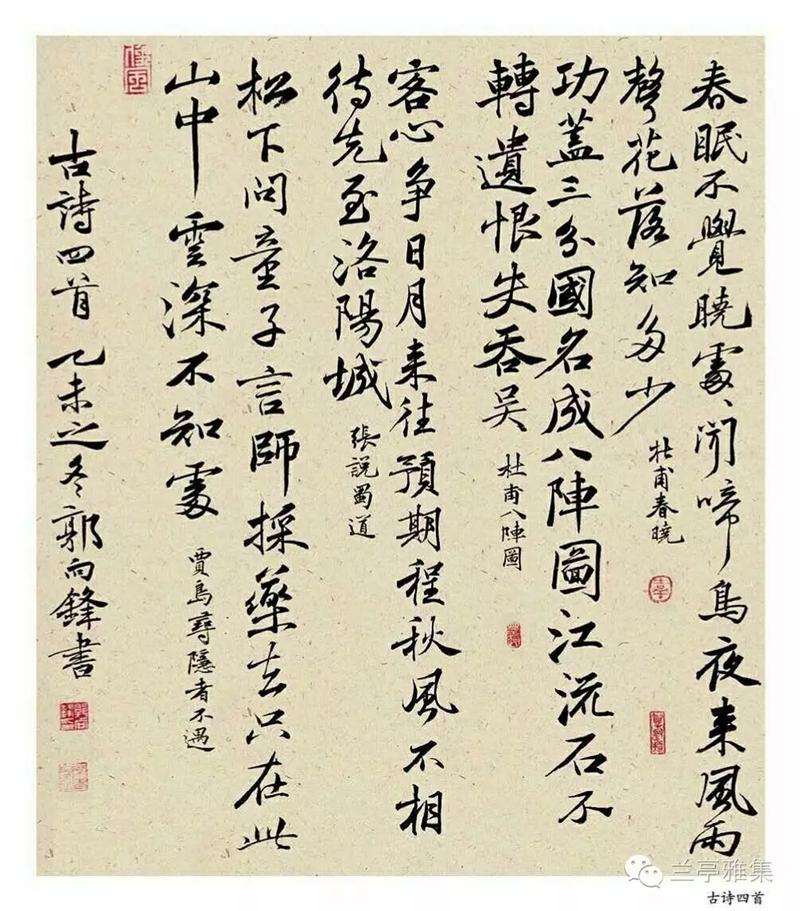 春眠不覺曉處〻聞啼鳥夜来風雨
聲花落知多少
杜甫春曉
功蓋三分國名成八陣圖江流石不
轉遺恨失吞吴
杜甫八陣圖
客心争日月来往預期程秋風不相
待先至洛陽城
張説蜀道
松下問童子言師採藥去只在此
山中雲深不知處
賈島尋隱者不遇
古詩四首乙未之冬郭向鋒書
兰亭雅集
古诗四首